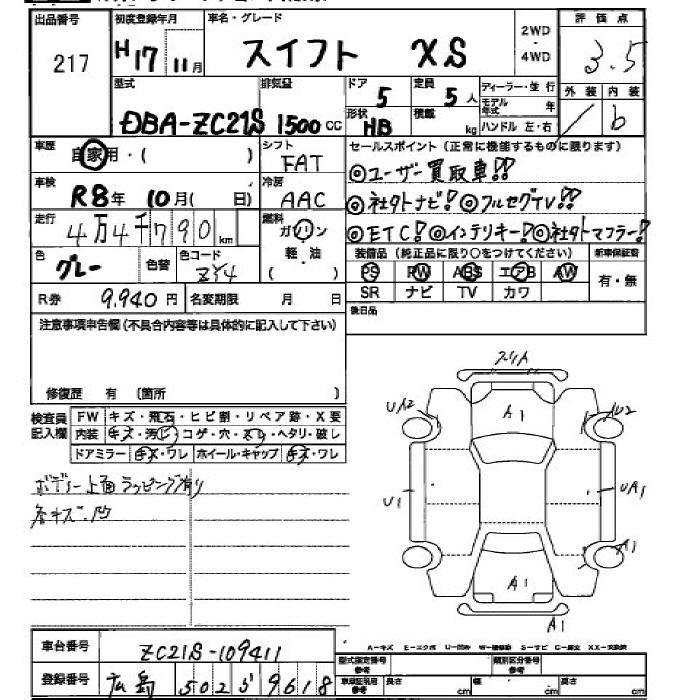 出品番号 初度登録年月 車名・グレード 2WD・4WD 評価点
217 H17 11月 スイフト XS 3.5
型式 排気量 ドア 定員 ディーラー・並行 外装 内装
DBA-ZC21S 1500cc 5 5人 モデル年式 年 b
形状 HB 積載 kg ハンドル 左・右
車歴 自家用・( ) シフト FAT セールスポイント(正常に機能するものに限ります)
◎ユーザー買取車!!
車検 R8年 10月( 日) 冷房 AAC ◎社外ナビ! ◎フルセグTV!!
走行 4万4千790km 燃料 ガソリン・軽油・( ) ◎ETC! ◎インテリキー! ◎社外マフラー!
色 グレー 色替 色コード ZY4
装備品(純正品に限り○をつけてください) 新車保証書
PS PW ABS エアB AW 有・無
SR ナビ TV カワ
R券 9,940円 名変期限 月 日 後日品
注意事項申告欄(不具合内容等は具体的に記入して下さい)
修復歴 有 〔箇所 〕
検査員記入欄 FW キズ・飛石・ヒビ割・リペア跡・X要
内装 キズ・汚レ・コゲ・穴・スレ・ヘタリ・破レ
ドアミラー キズ・ワレ ホイール・キャップ キズ・ワレ
ボディー上面ラッピング有り
各キズ.凹
スリ人
UA2 A1 U2
U1 UA1
A1
A1
A1
A-キズ E-エクボ U-凹み W-補修跡 S-サビ C-腐食 XX-交換済
車台番号 ZC21S-109411
登録番号 広島 502 ſ 9618
型式指定番号 参考 類別区分番号 参考
車車証明用 参考 長さ cm 幅 cm 高さ cm